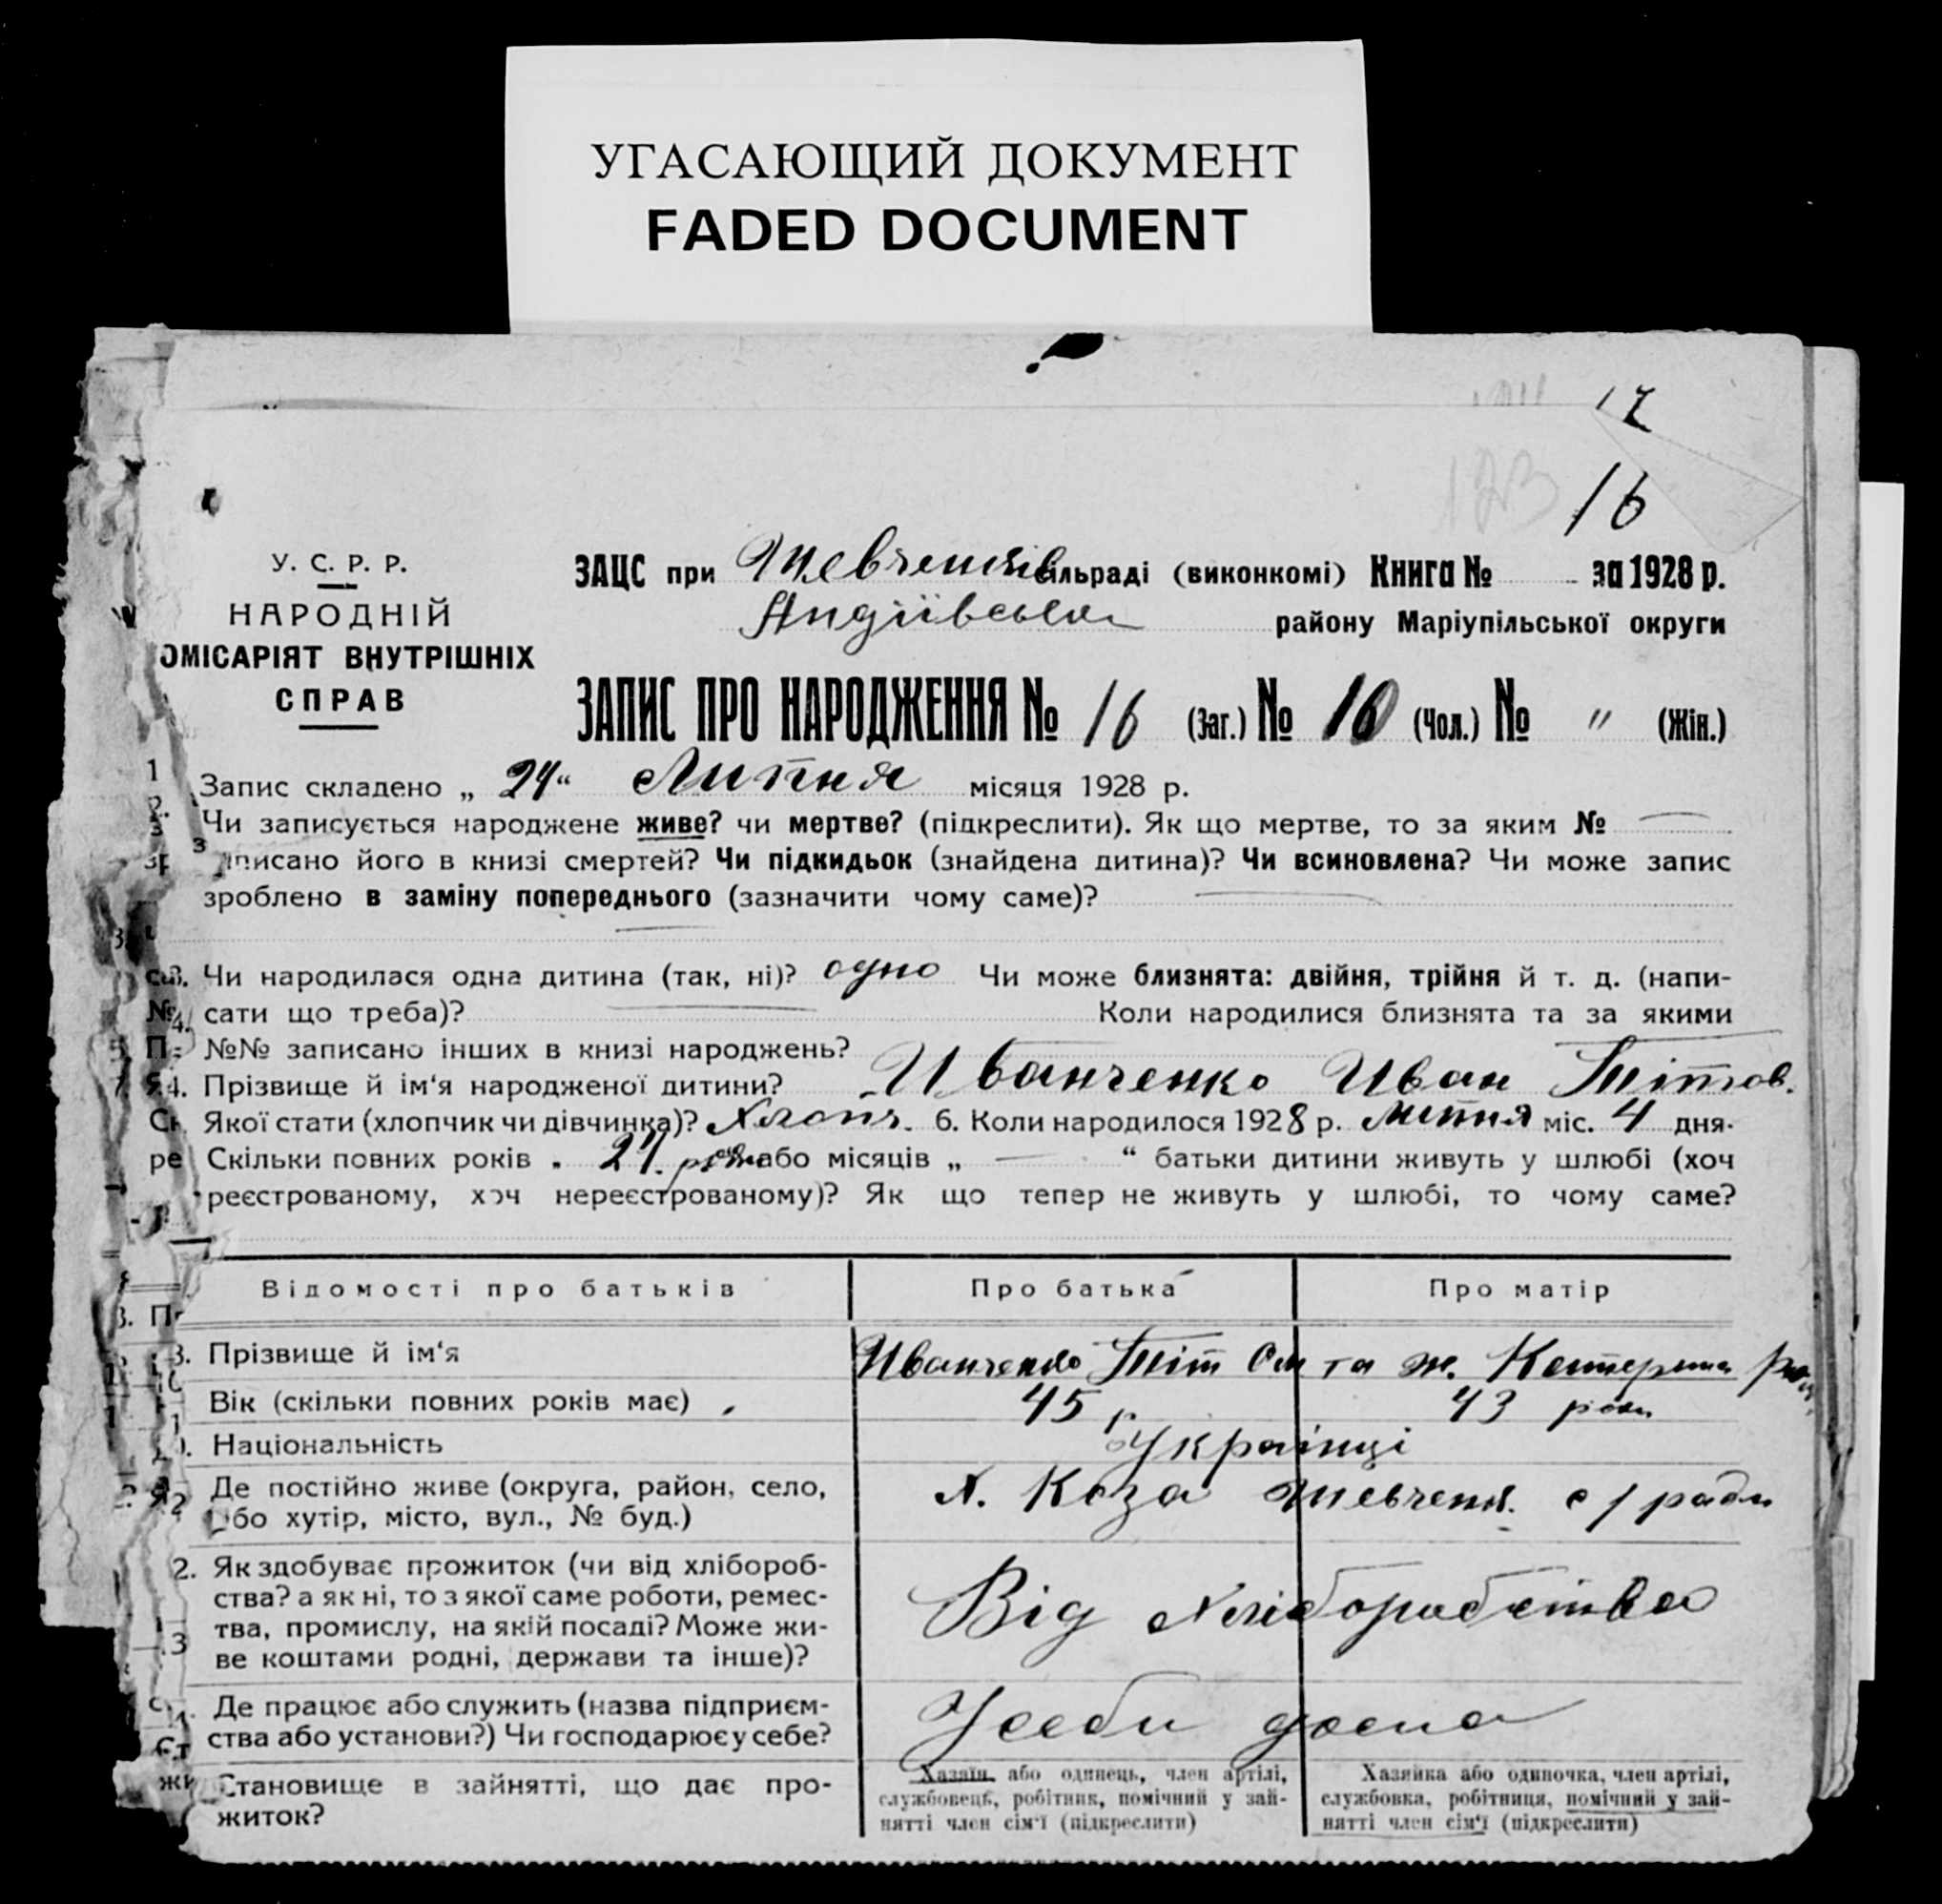 УГАСАЮЩИЙ ДОКУМЕНТ
FADED DOCUMENT
17
123
16
У. С. Р. Р.
НАРОДНІЙ
ОМІСАРІЯТ ВНУТРІШНІХ
СПРАВ
ЗАЦС при Шевченків сільраді (виконкомі) Книга № за 1928 р.
района Маріупільської округи
ЗАПИС ПРО НАРОДЖЕННЯ № 16 (Заг.) № 10 (Чол.) № " (Жін.)
1 Запис складено „ 24 “ Липня місяця 1928 р.
2. Чи записується народжене живе? чи мертве? (підкреслити). Як що мертве, то за яким №
писано його в книзі смертей? Чи підкидьок (знайдена дитина)? Чи всиновлена? Чи може запис
зроблено в заміну попереднього (зазначити чому саме)?
3. Чи народилася одна дитина (так, ні)? одно Чи може близнята: двійня, трійня й т. д. (напи-
сати що треба)? Коли народилися близнята та за якими
№№ записано інших в книзі народжень?
4. Прізвище й ім‘я народженої дитини? Иванченко Иван Тітов.
Якої стати (хлопчик чи дівчинка)? Хлопч. 6. Коли народилося 1928 р. липня міс. 4 дня.
Скільки повних років 24. або місяців „ — “ батьки дитини живуть у шлюбі (хоч
реєстрованому, хоч нереєстрованому)? Як що тепер не живуть у шлюбі, то чому саме?
Відомості про батьків Про батька Про матір
Прізвище й ім‘я Иванченко Тіт Ом та ж. Катерина
Вік (скільки повних років має) 45 р 43 роки
Національність Українці
Де постійно живе (округа, район, село,
або хутір, місто, вул., № буд.) х. Коза Шевченк. с/ради
2. Як здобуває прожиток (чи від хлібороб-
ства? а як ні, то з якої саме роботи, ремес-
тва, промислу, на якій посаді? Може жи-
ве коштами родні, держави та інше)? Від хліборобства
Де працює або служить (назва підприєм-
ства або установи?) Чи господарює у себе? Усеби дома
Становище в зайнятті, що дає про-
житок?
Хазяїн або одинець, член артілі,
службовець, робітник, помічний у зай-
нятті член сім‘ї (підкреслити)
Хазяйка або одиночка, член артілі,
службовка, робітниця, помічний у зай-
нятті член сім‘ї (підкреслити)